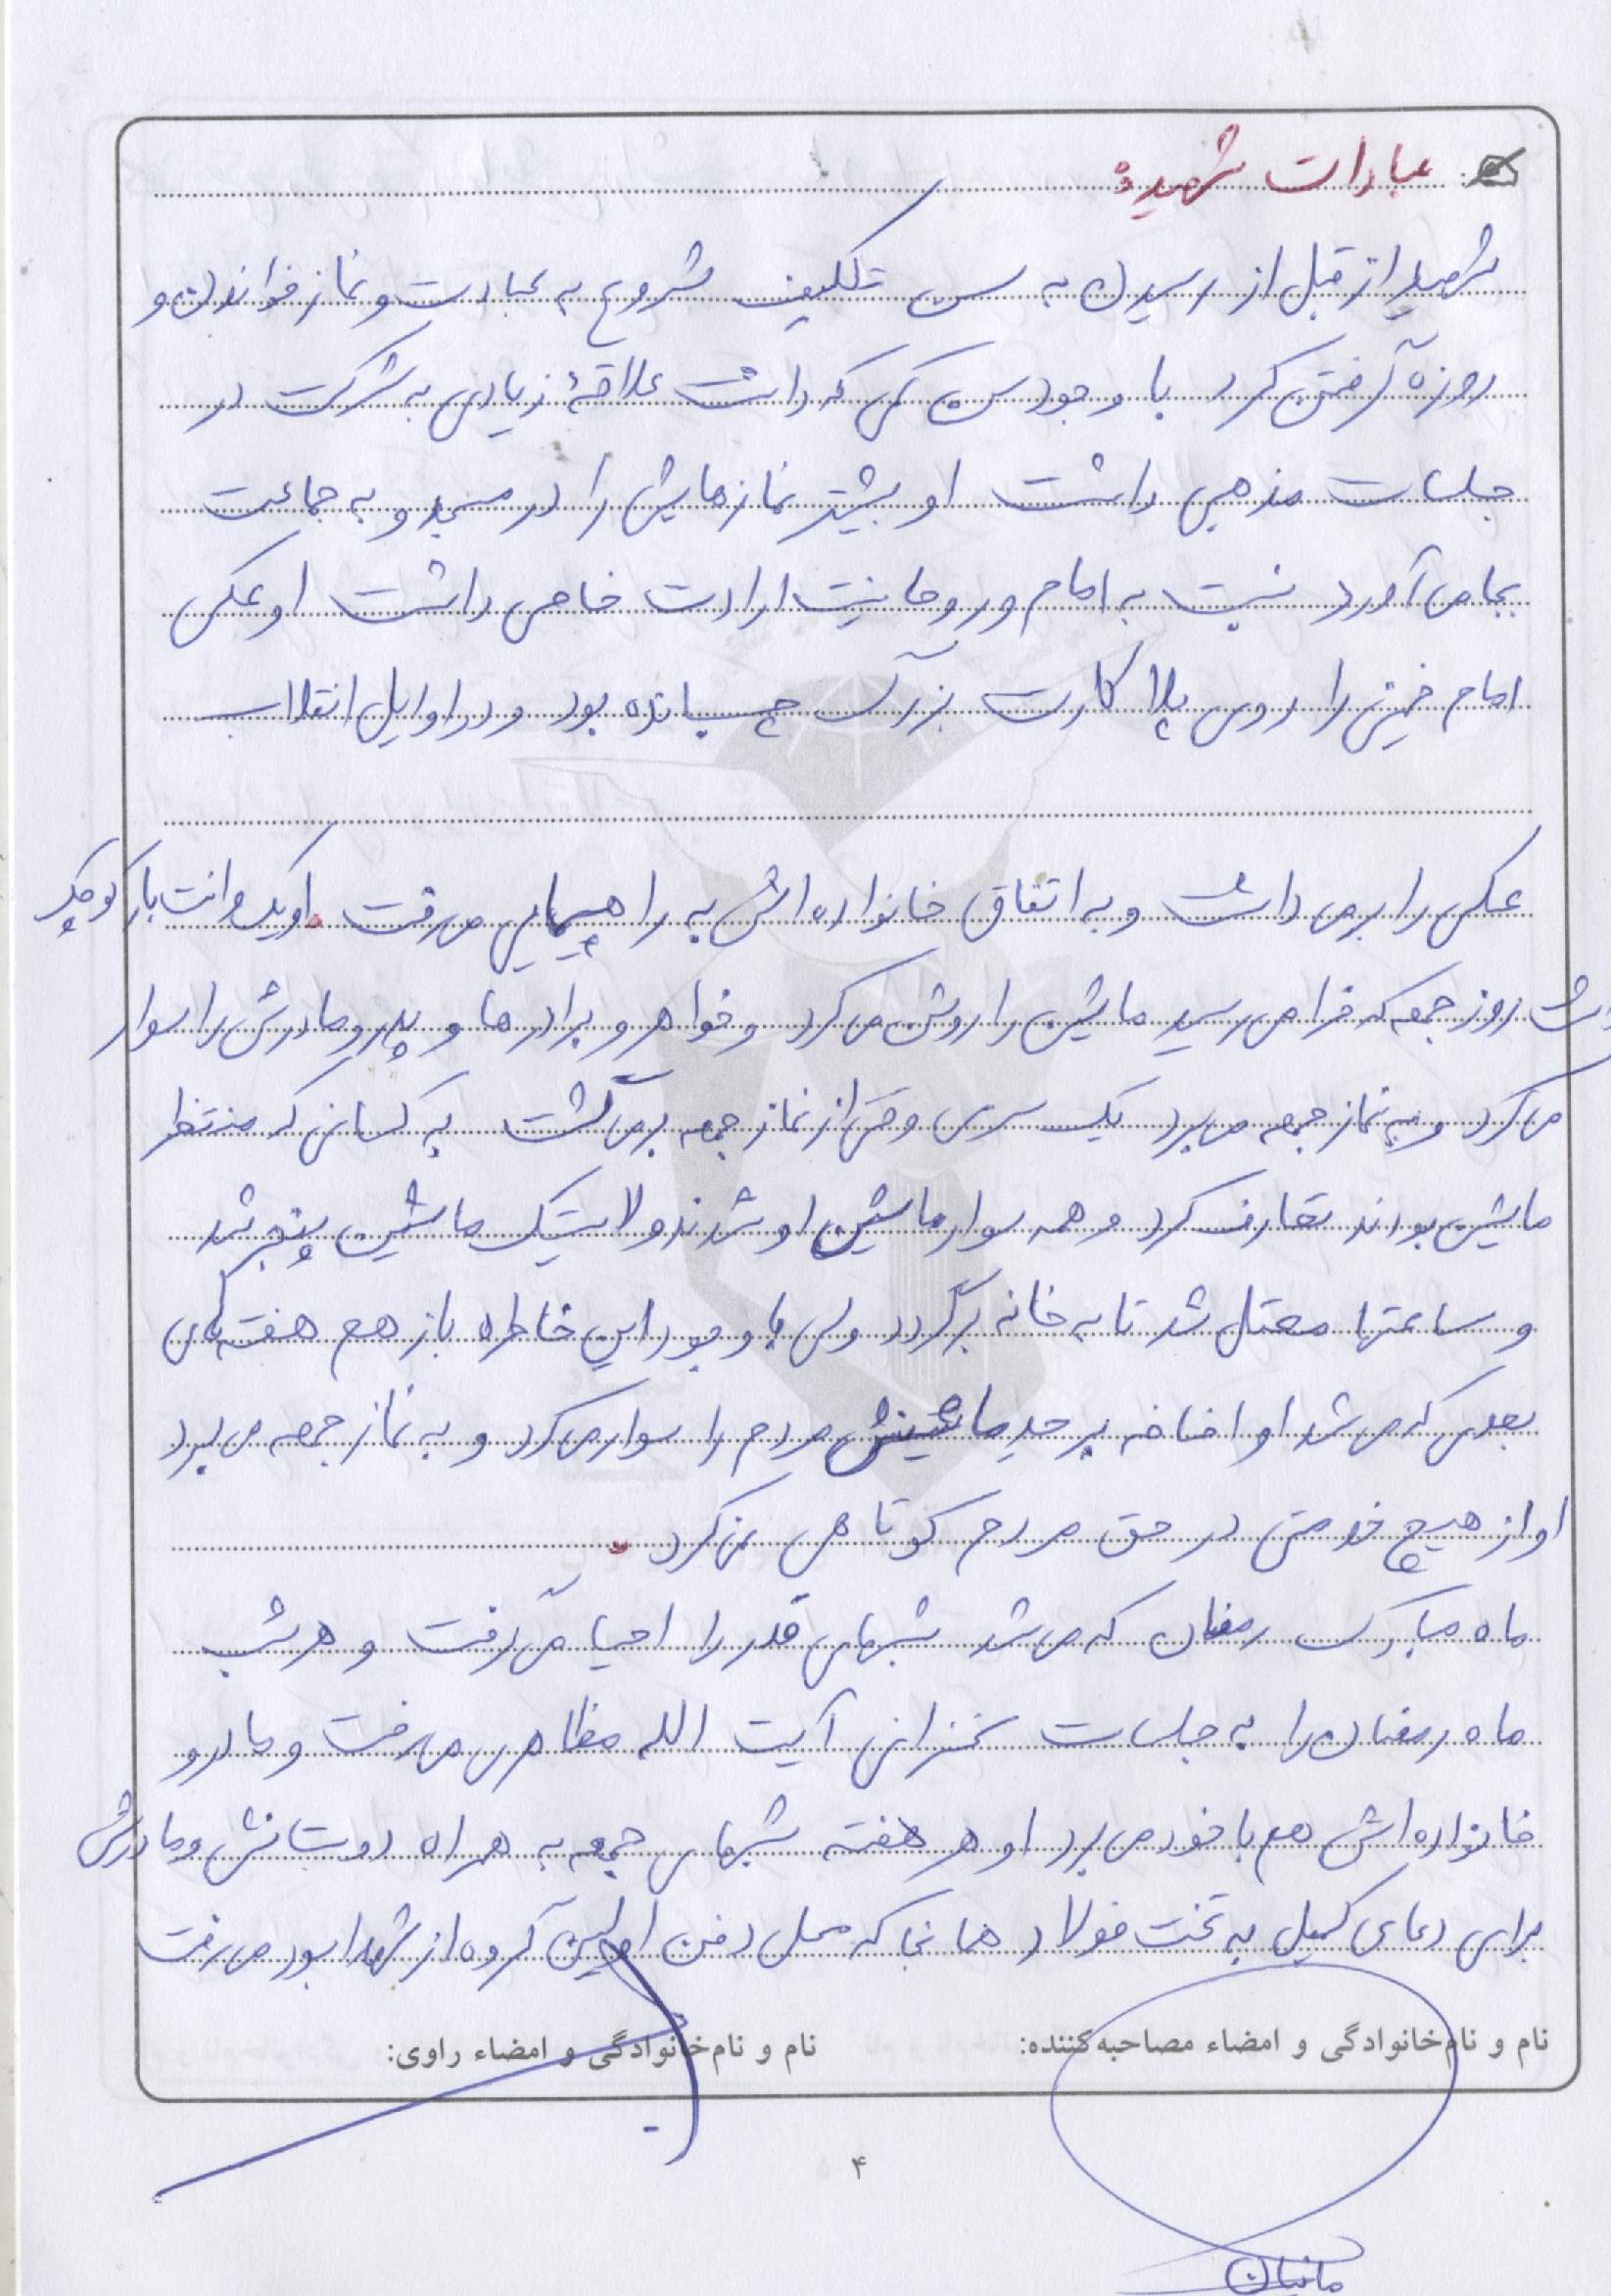 عبادات شهید:
شهید از قبل از رسیدن به سن تکلیف شروع به عبادت و نماز خواندن و
روزه گرفتن کرد با وجود سن کمی که داشت علاقهٔ زیادی به شرکت در
جلسات مذهبی داشت او بیشتر نمازهایش را در مسجد و به جماعت
بجا می آورد نسبت به امام و روحانیت ارادت خاصی داشت او عکس
امام خمینی را روی پلا کارت بزرگ چسبانده بود و در اوایل انقلاب
عکس را بر می داشت و به اتفاق خانواده اش به راهپیمایی می رفت. او یک وانت بار کوچک
داشت روز جمعه که فرا می رسید ماشین را روشن می کرد و خواهر و برادرها و پدر و مادرش را سوار
می کرد و به نماز جمعه می برد یک سری وقتی از نماز جمعه بر می گشت به کسانی که منتظر
ماشین بودند تعارف کرد و همه سوار ماشین او شدند و لاستیک ماشین پنچر شد
و ساعتها معتل شد تا به خانه برگردد ولی با وجود این خاطره باز هم هفته های
بعدی که می شد او اضافه بر حد ماشینش مردم را سوار می کرد و به نماز جمعه می برد
او از هیچ خدمتی در حق مردم کوتاهی نمی کرد.
ماه مبارک رمضان که می شد شبهای قدر را احیا می گرفت و هر شب
ماه رمضان را به جلسات سخنرانی آیت الله مظاهری می رفت و مادر و
خانواده اش هم با خود می برد او هر هفته شبهای جمعه به همراه دوستانش و مادرش
برای دعای کمیل به تخت فولاد همانجا که محل دفن اولین گروه از شهدا بود می رفت
نام و نام‌خانوادگی و امضاء مصاحبه‌کننده:
نام و نام‌خانوادگی و امضاء راوی:
۴